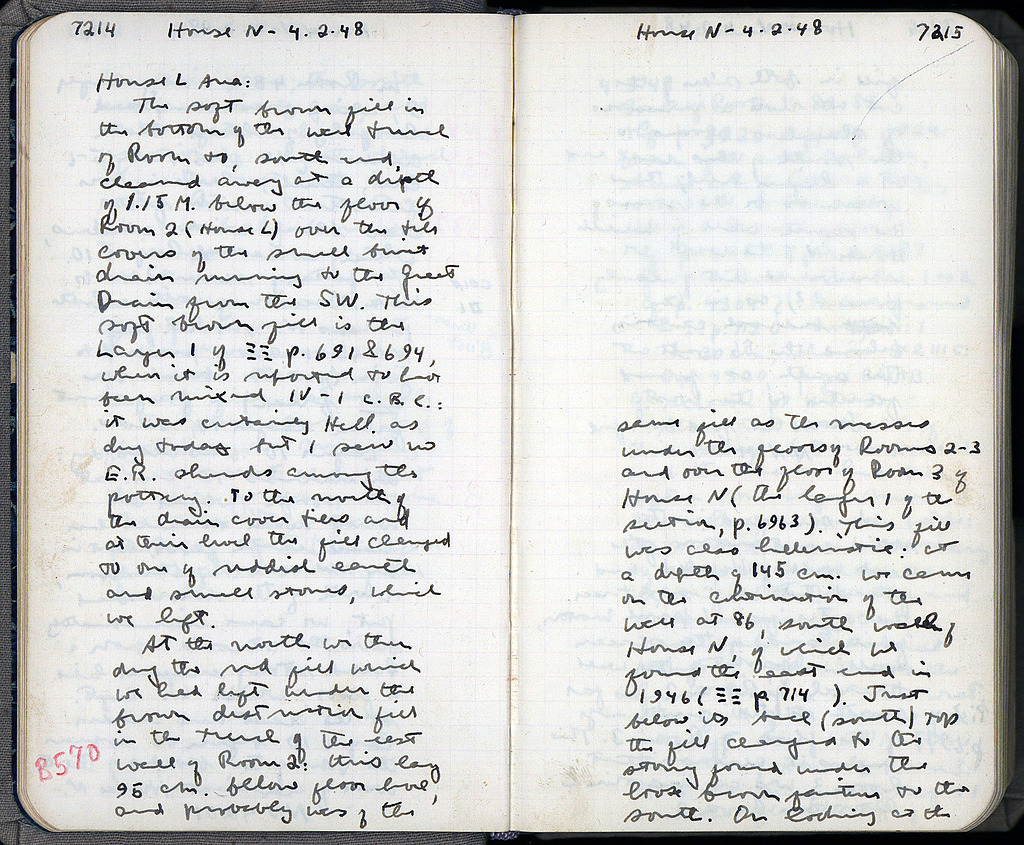 7214 House N - 4.2.48
House L Area:
The soft brown fill in
the bottom of the wall trench
of Room 10, south end,
cleaned away at a depth
of 1.15 M. below the floor of
Room 2 (House L) over the tile
covers of the small built
drain running to the Great
Drain from the SW. This
soft brown fill is the
Layer 1 of ΞΞ p. 691 & 694,
when it is reported to have
been mixed IV-I c. B.C.:
it was certainly Hell. as
dug today but I saw no
E.R. sherds among the
pottery. To the north of
the drain cover tiles and
at their level the fill changed
to one of reddish earth
and small stones, which
we left.
At the north we then
dug the red fill which
we had left under the
brown destruction fill
in the trench of the west
wall of Room 2: this lay
8570
95 cm. below floor level,
and probably was of the
House N - 4.2.48 7215
same fill as the masses
under the floors of Rooms 2-3
and over the floor of Room 3 of
House N (the layer 1 of the
section, p. 6963). This fill
was also Hellenistic: at
a depth of 145 cm. we came
on the continuation of the
wall at 86, south wall of
House N, of which we
found the east end in
1946 (ΞΞ p 714 ). Just
below its back (south) top
the fill changed to the
strong found under the
loose brown further to the
south. On looking at the